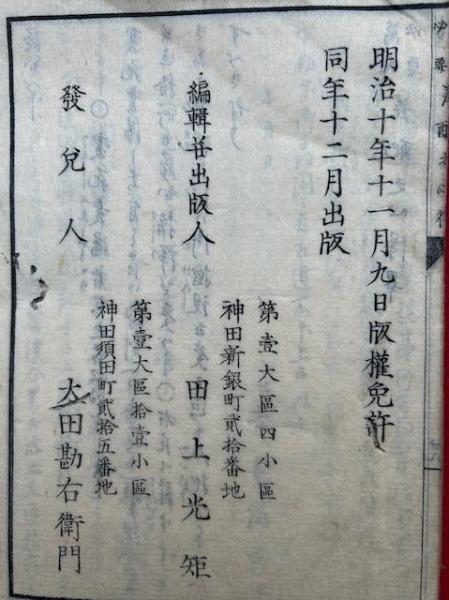 明治十年十一月九日版權免許
同年十二月出版
編輯并出版人
第壹大區四小區
神田新銀町貳拾番地
田上光矩
第壹大區拾壹小區
神田須田町貳拾五番地
發兌人
太田勘右衛門